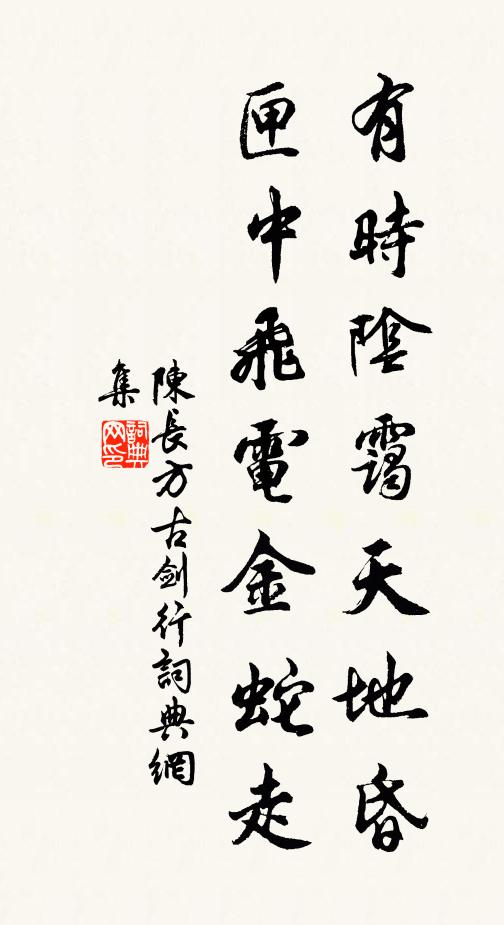 有時陰靄天地昏
匣中飛電金蛇走
陳長方古劍行詞典網
集
詞典
网印